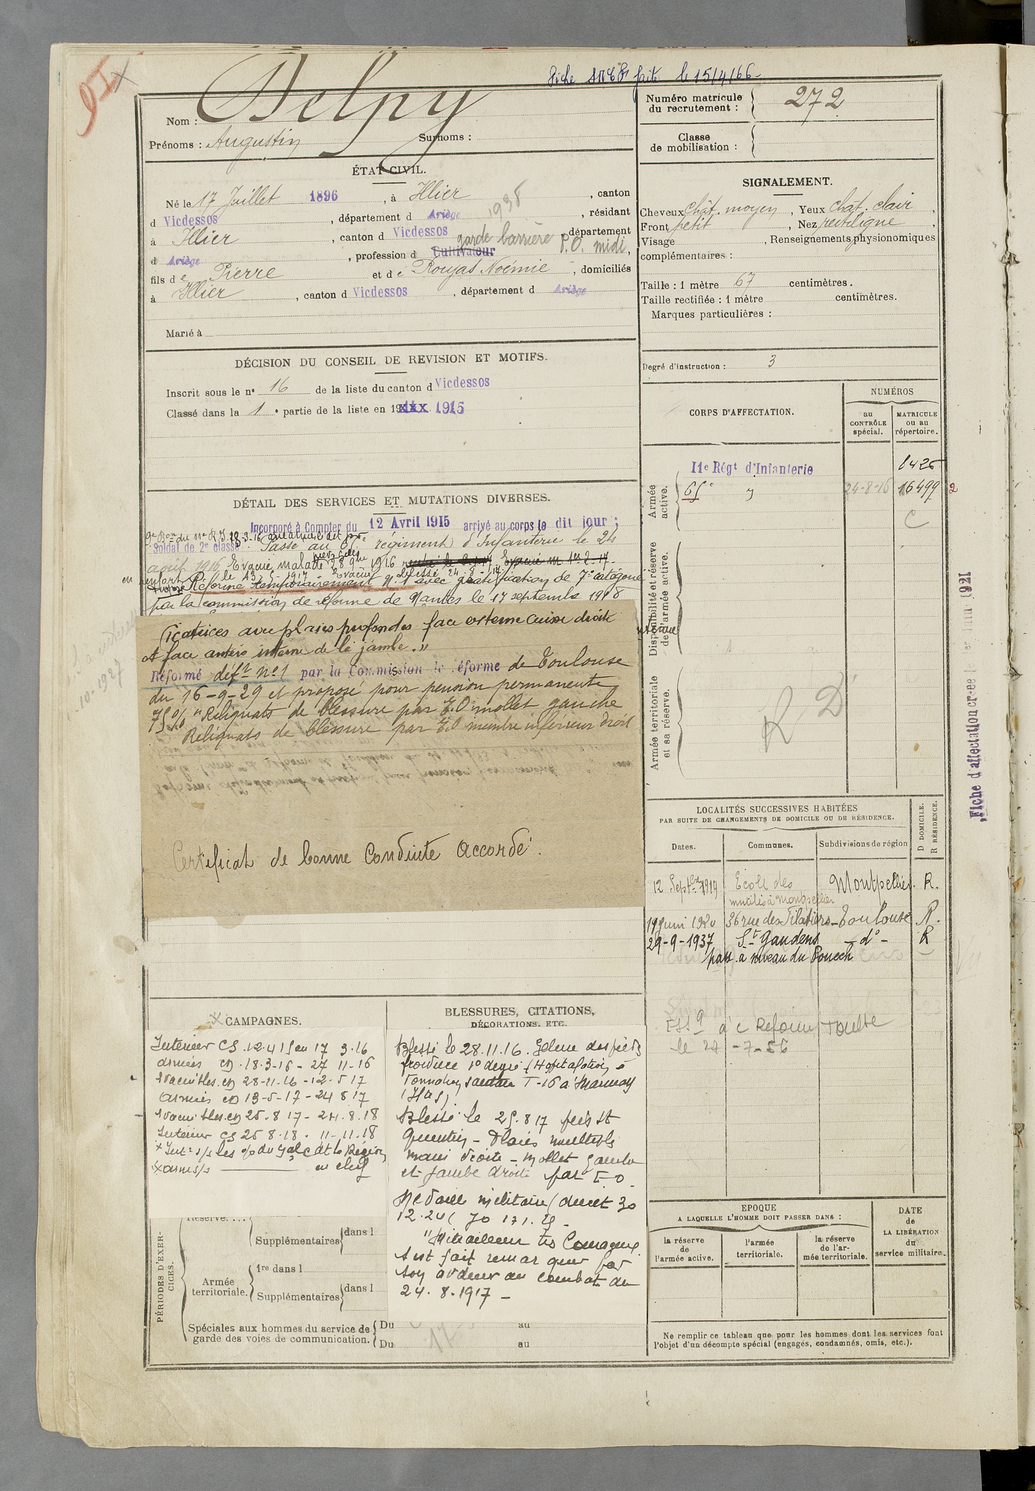 91
Fiche
fait le 15/4/66
Nom : Delpy
Prénoms : Augustin Surnoms :
Numéro matricule du recrutement : 272
Classe de mobilisation :
ÉTAT CIVIL.
Né le 17 Juillet 1896, à Illier, canton
d Vicdessos, département d Ariège, résidant
1938
à Illier, canton d Vicdessos, département
garde barrière P.O. midi
d Ariège, profession d Cultivateur,
fils de Pierre et de Noémie, domiciliés
à Illier, canton d Vicdessos, département d Ariège
Marié à
SIGNALEMENT.
Cheveux Chât. moyen, Yeux chât. clair
Front petit, Nez rectiligne,
Visage, Renseignements physionomiques
complémentaires :
Taille : 1 mètre 67 centimètres.
Taille rectifiée : 1 mètre centimètres.
Marques particulières :
Degré d'instruction : 3
DÉCISION DU CONSEIL DE REVISION ET MOTIFS.
Inscrit sous le n° 16 de la liste du canton d Vicdessos
Classé dans la 1e partie de la liste en 19 1915
CORPS D'AFFECTATION.
NUMÉROS
au CONTRÔLE spécial.
MATRICULE ou au répertoire.
Armée active.
11e Régt d'Infanterie 1425
65e 24-8-16 16499 2
C
Disponibilité et réserve de l'armée active.
Armée territoriale et sa réserve.
R D
Fiche d'affectation créée le 1921
DÉTAIL DES SERVICES ET MUTATIONS DIVERSES.
Incorporé à Compter du 12 Avril 1915 arrivé au corps le dit jour ;
Soldat de 2e classe
Passé au 65e régiment d'Infanterie le 24
août 1916 Evacué malade 28 9bre 1916
Réformé temporairement n° 1 avec gratification de 7e catégorie
par la commission de réforme de Nantes le 17 septembre 1918
10-1927
Cicatrices avec plaies profondes face externe cuisse droite
et face antéro interne de la jambe."
Réformé déf.t n° 1 par la Commission de réforme de Toulouse
du 16-9-29 et proposé pour pension permanente
75 % "Reliquats de blessure par E.O mollet gauche
Reliquats de blessure par E.O membre inférieur droit
Certificat de bonne Conduite Accordé.
LOCALITÉS SUCCESSIVES HABITÉES
PAR SUITE DE CHANGEMENTS DE DOMICILE OU DE RÉSIDENCE.
Dates. Communes. Subdivisions de région
D DOMICILE.
R RÉSIDENCE.
12 Septbre 1919 Ecole des mutilés à Montpellier Montpellier. R.
19 Juin 1920 36 rue des Filatiers Toulouse R.
29-9-1937 St Gaudens d° R
pass. à niveau du Pouech
Réforme Toulse
le 24-7-56
CAMPAGNES.
Intérieur CS 12.4.15 au 17 3.16
Armées CD 18-3-16 - 27 11-16
Evacué bles. CD 28-11-16 - 12-5 17
Armées CD 13-5-17 - 24 8 17
Evacué bles. CD 25-8 17 - 24.8.18
Intérieur CS 25 8.18 - 11-11.18
BLESSURES, CITATIONS,
DÉCORATIONS, ETC.
Blessé le 28.11.16. Gelure des pieds
Blessé le 25.8 17 près St
Quentin - Plaies multiples
main droite - mollet gauche
et jambe droite par E.O.
Médaille militaire (décret 30
12.24
"Mitrailleur très Courageux
s'est fait remarquer par
son ardeur au combat du
24.8.1917 -
PÉRIODES D'EXERCICES.
Réserve.
Supplémentaires dans l
Armée territoriale.
1re dans l
Supplémentaires dans l
Spéciales aux hommes du service de
garde des voies de communication.
Du au
Du au
EPOQUE
A LAQUELLE L'HOMME DOIT PASSER DANS :
la réserve de l'armée active.
l'armée territoriale.
la réserve de l'armée territoriale.
DATE de LA LIBÉRATION du service militaire.
Ne remplir ce tableau que pour les hommes dont les services font
l'objet d'un décompte spécial (engagés, condamnés, omis, etc.).